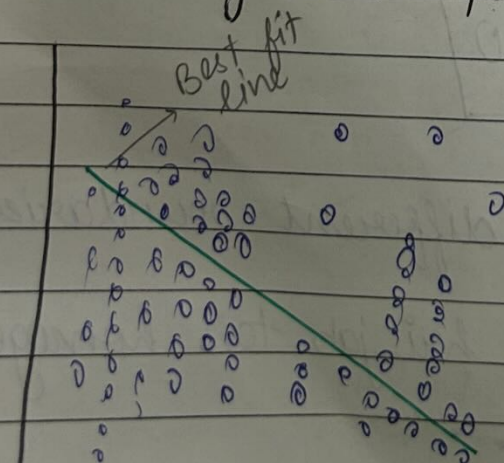 Best fit
line